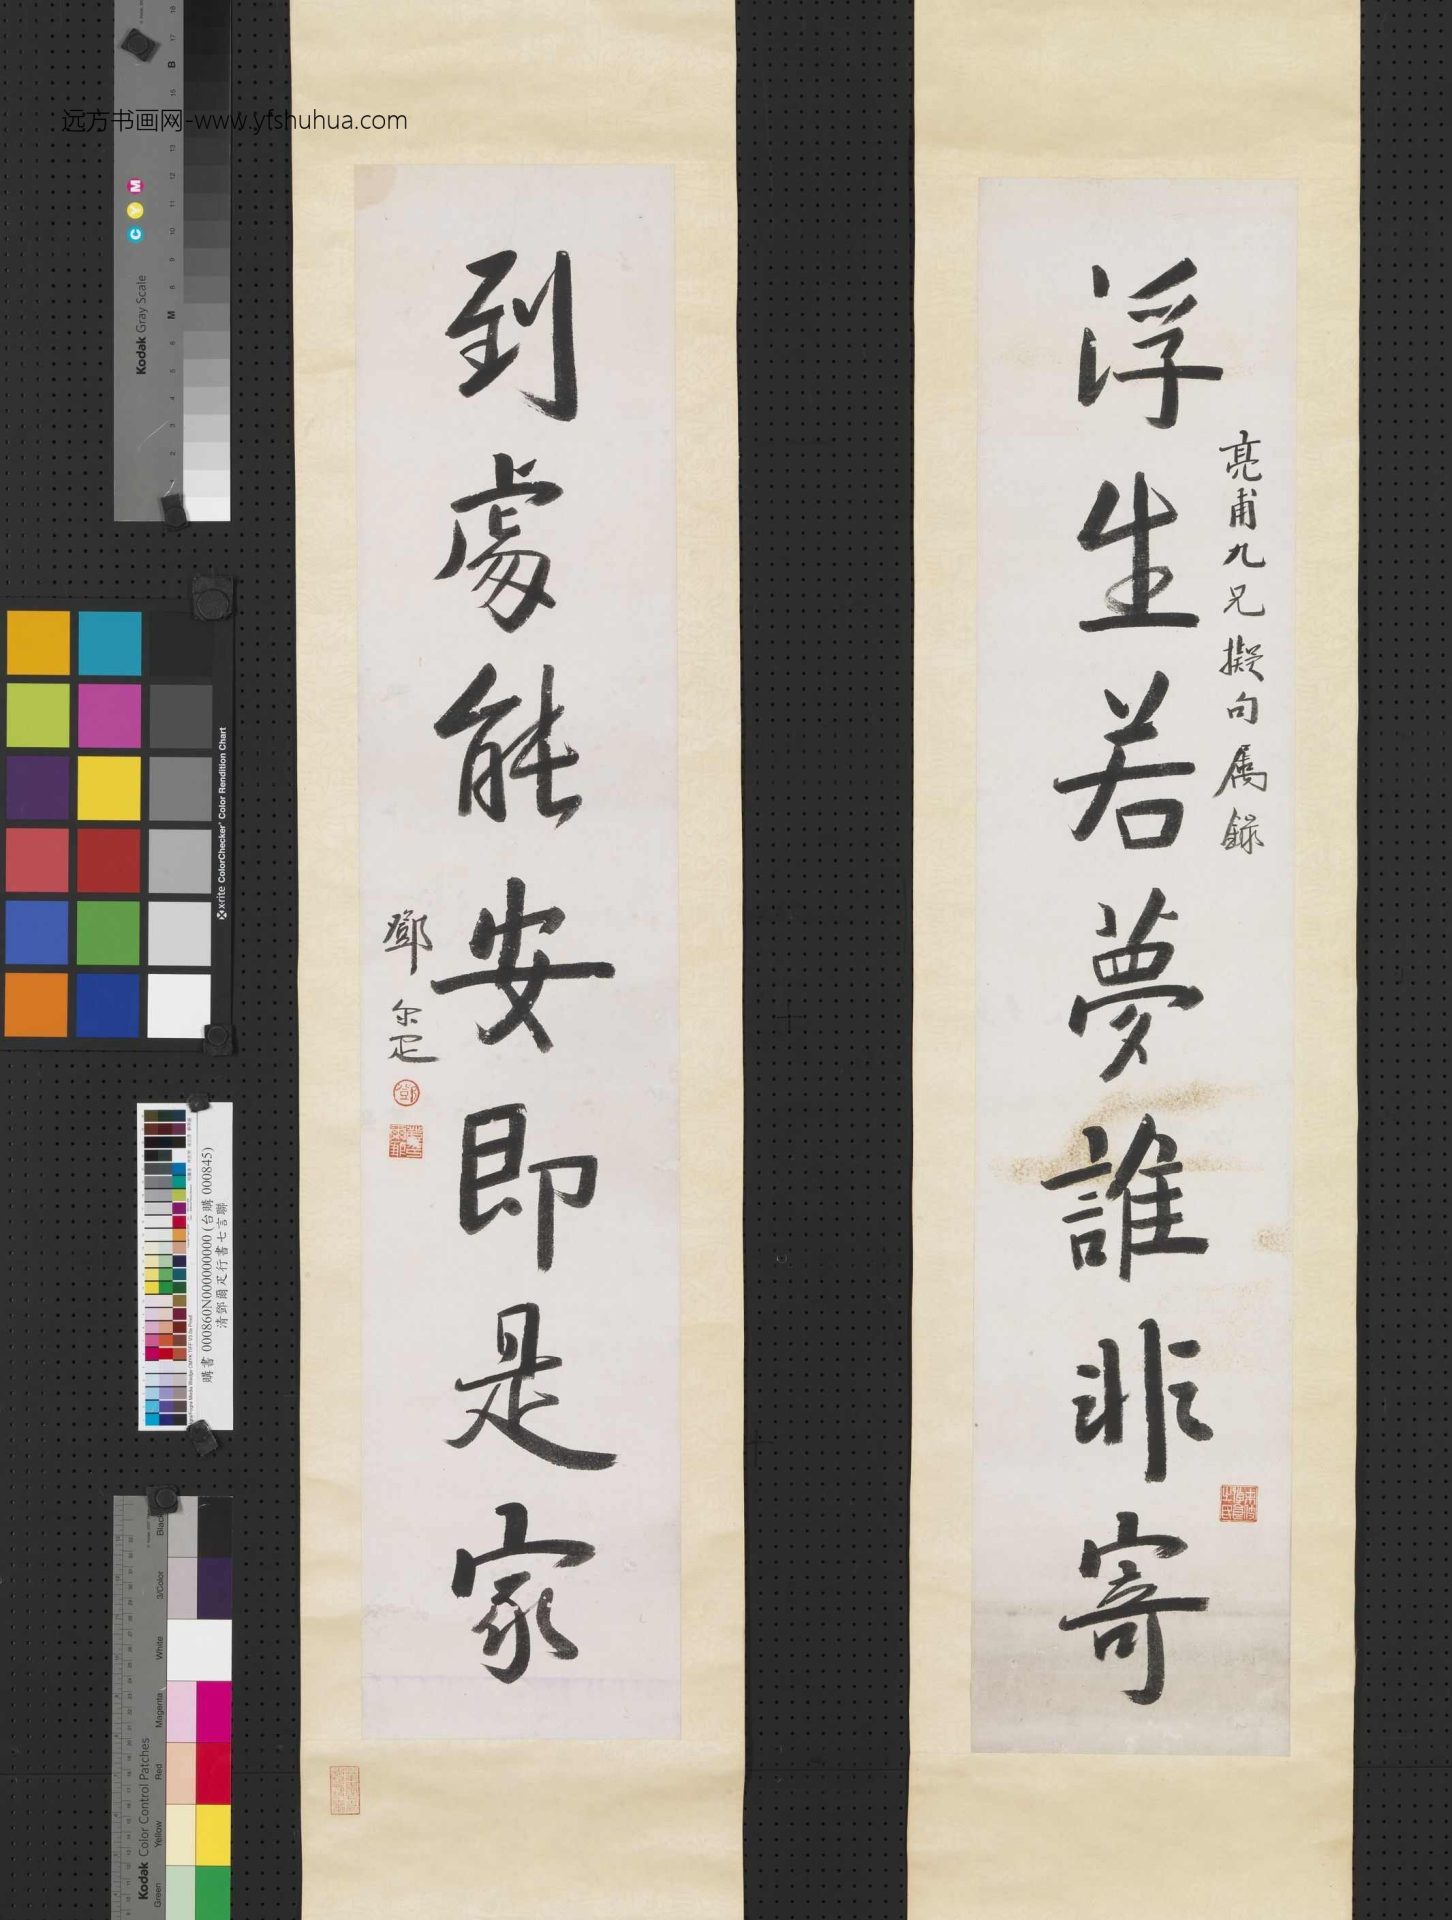 远方书画网-www.yfshuhua.com
浮生若夢誰非寄
亮甫九兄擬句屬錄
到處能安即是家
鄧尔疋
購書 000860N000000000 (台購 000845)
清鄧爾疋行書七言聯
Kodak Gray Scale
C Y M
B
M
x-rite ColorChecker Color Rendition Chart
Kodak Color Control Patches
Black
3/Color
White
Magenta
Red
Yellow
Green